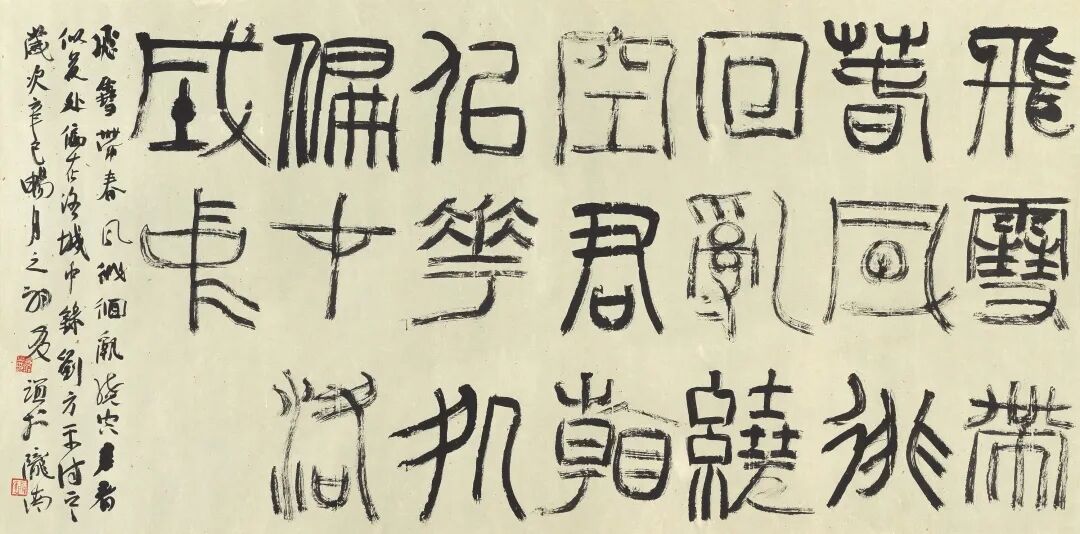 飛雪帶
春風徘
回亂繞
空君看
似花処
偏在洛
城中
飛雪帶春風徘徊亂繞空君看
似花处偏在洛城中錄劉方平詩
歲次辛巳暢月之於隴南